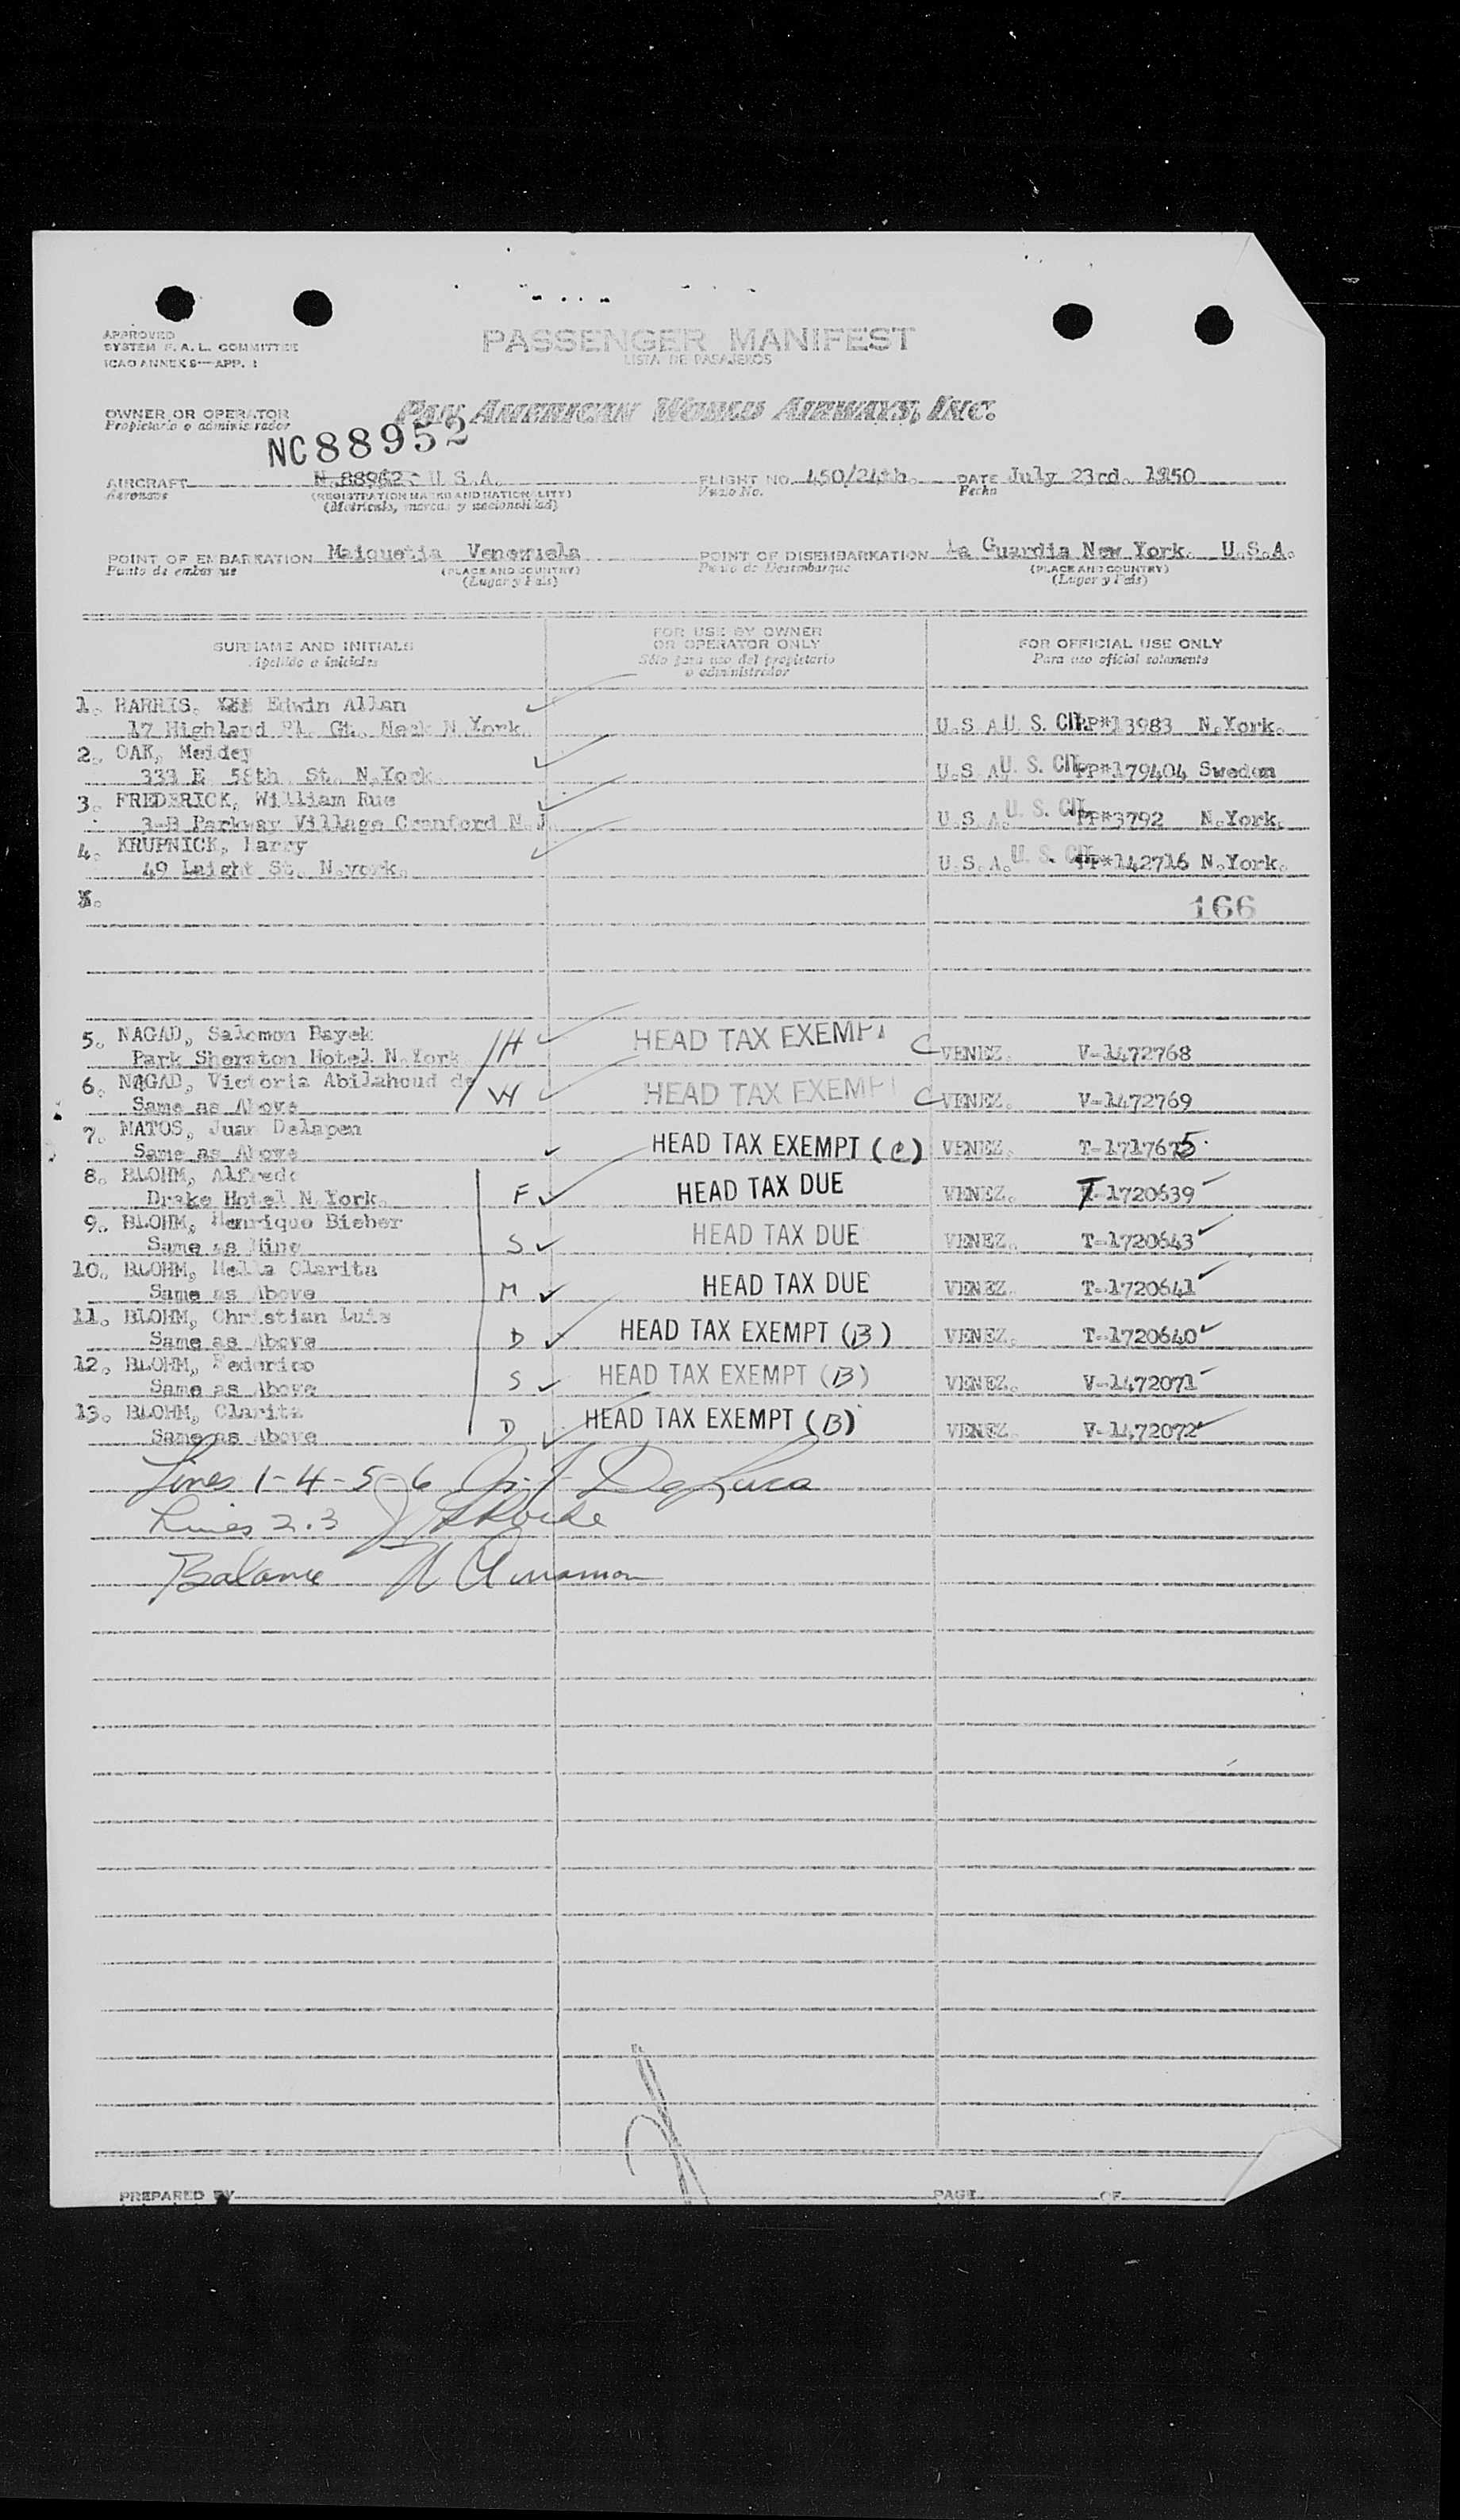 APPROVED
SYSTEM F.A.L. COMMITTEE
ICAO ANNEX 9—APP. 2
PASSENGER MANIFEST
LISTA DE PASAJEROS
OWNER OR OPERATOR
Propietario o administrador
PAN AMERICAN WORLD AIRWAYS, INC.
NC88952
AIRCRAFT N.88962- U.S.A. FLIGHT NO. 450/24th. DATE July 23rd. 1950
Aeronave (REGISTRATION MARKS AND NATIONALITY) Vuelo No. Fecha
(Matricula, marcas y nacionalidad)
POINT OF EMBARKATION Maiquetia Venezuela POINT OF DISEMBARKATION La Guardia New York. U.S.A.
Punto de embarque (PLACE AND COUNTRY) Punto de Desembarque (PLACE AND COUNTRY)
(Lugar y Pais) (Lugar y Pais)
SURNAME AND INITIALS FOR USE BY OWNER OR OPERATOR ONLY FOR OFFICIAL USE ONLY
Apellido e iniciales Sólo para uso del propietario o administrador Para uso oficial solamente
1. HARRIS, Edwin Allan
17 Highland Pl. Gt. Neck N.York. U.S.A. U.S. CIT. PP*13983 N.York.
2. OAK, Meidey
333 E. 58th St. N.York U.S.A. U.S. CIT. PP*179404 Sweden
3. FREDERICK, William Rue
3-B Parkway Village Cranford N.J U.S.A. U.S. CIT. PP*3792 N.York.
4. KRUPNICK, Harry
49 Laight St. N.york. U.S.A. U.S. CIT. PP*142716 N.York.
166
5. NAGAD, Salomon Bayek
Park Sheraton Hotel N.York H HEAD TAX EXEMPT C VENEZ. V-1472768
6. NAGAD, Victoria Abilahoud de
Same as Above W HEAD TAX EXEMPT C VENEZ. V-1472769
7. MATOS, Juan Delapen
Same as Above HEAD TAX EXEMPT (C) VENEZ. T-1717675
8. BLOHM, Alfredo
Drake Hotel N.York. F HEAD TAX DUE VENEZ. T-1720639
9. BLOHM, Henrique Bieber
Same as Nine S HEAD TAX DUE VENEZ. T-1720643
10. BLOHM, Mella Clarita
Same as Above M HEAD TAX DUE VENEZ. T-1720641
11. BLOHM, Christian Luis
Same as Above D HEAD TAX EXEMPT (B) VENEZ. T-1720640
12. BLOHM, Federico
Same as Above S HEAD TAX EXEMPT (B) VENEZ. V-1472071
13. BLOHM, Clarita
Same as Above D HEAD TAX EXEMPT (B) VENEZ. V-1472072
Lines 1-4-5-6 DeLuca
Lines 2.3
Balance
PREPARED BY PAGE OF